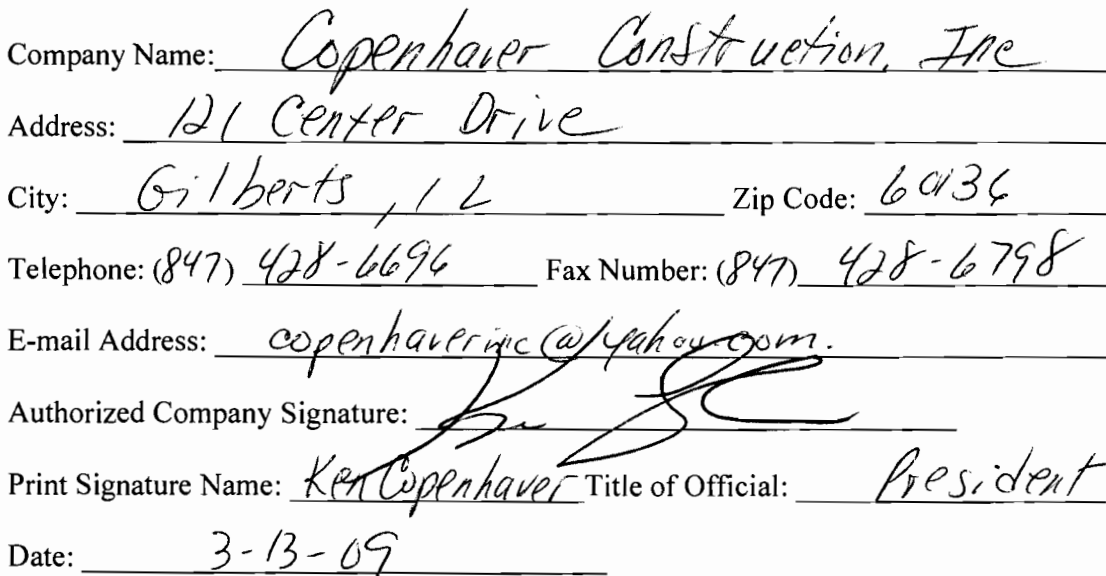 Company Name: Copenhaver Construction, Inc
Address: 121 Center Drive
City: Gilberts, IL Zip Code: 60136
Telephone: (847) 428-6696 Fax Number: (847) 428-6798
E-mail Address: copenhaverinc@yahoo.com.
Authorized Company Signature:
Print Signature Name: Ken Copenhaver Title of Official: President
Date: 3-13-09